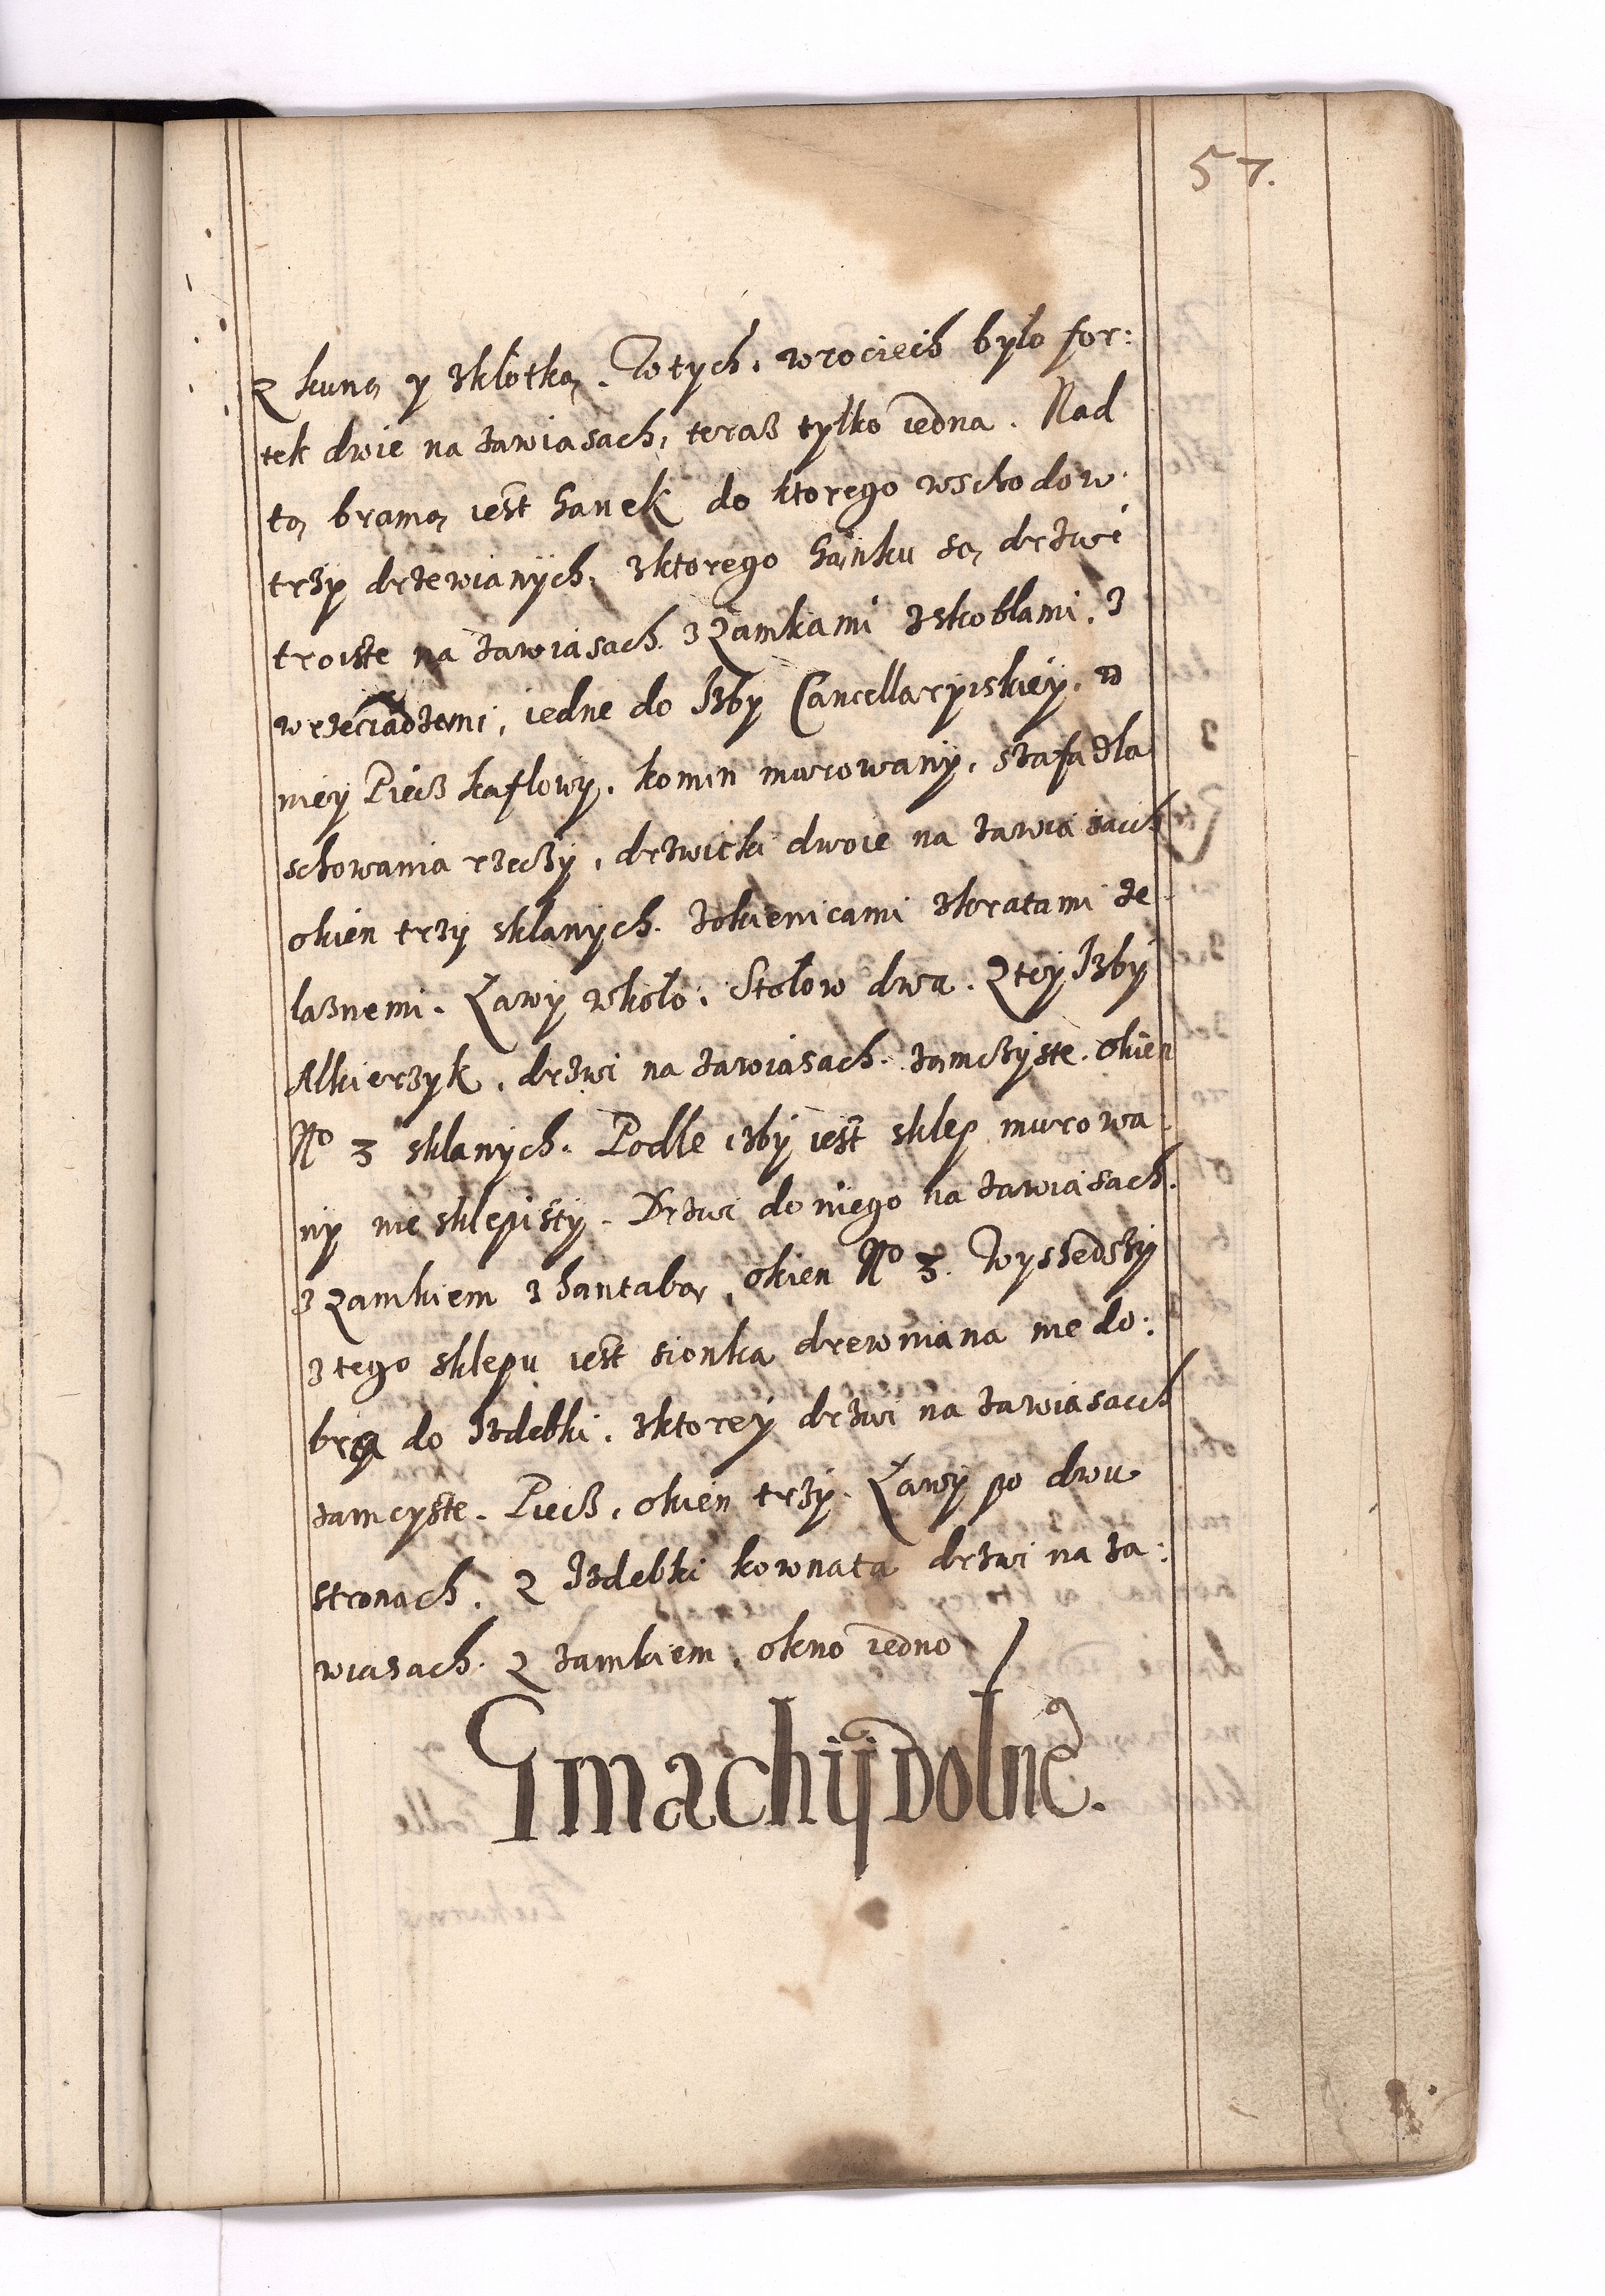 57.
Z kuną y zkłotką. W tych wrociech było for:
tek dwie na zawiasach, teraß tylko iedna. Nad
tą bramą iest Ganek do ktorego wschodow
trzy drzewianÿch, zktorego Gąnku są drzwi
troiste na zawiasach z Zamkami zskoblami. z
wrzeciądzami, iedne do Izby Cancellaryiskiey. w
niey Piecß kaflowÿ, komin murowanÿ, szafa dla
schowania rzeczÿ, drzwicki dwoie na zawiasach
okien trzÿ sklanÿch. zokienicami zkratami że
laznemi. Ławÿ wkoło. Stołow dwa. Z teÿ Izbÿ
Alkierzyk, drzwi na zawiasach zamczÿste. okien
No 3 sklanÿch. Podle izbÿ iest sklep murowa:
nÿ niesklepistÿ. Drzwi do niego na zawiasach.
z Zamkiem z hantabą, okien No 3. Wyszedszÿ
z tego sklepu iest sionka drewniana niedo:
bra do Izdebki, zktoreÿ drzwi na zawiasach
zamcyste. Piecß, okien trzÿ. Ławÿ po dwu
stronach. Z Izdebki kownata drzwi na za:
wiasach. Z zamkiem, okno iedno
Gmachÿ Dolne.